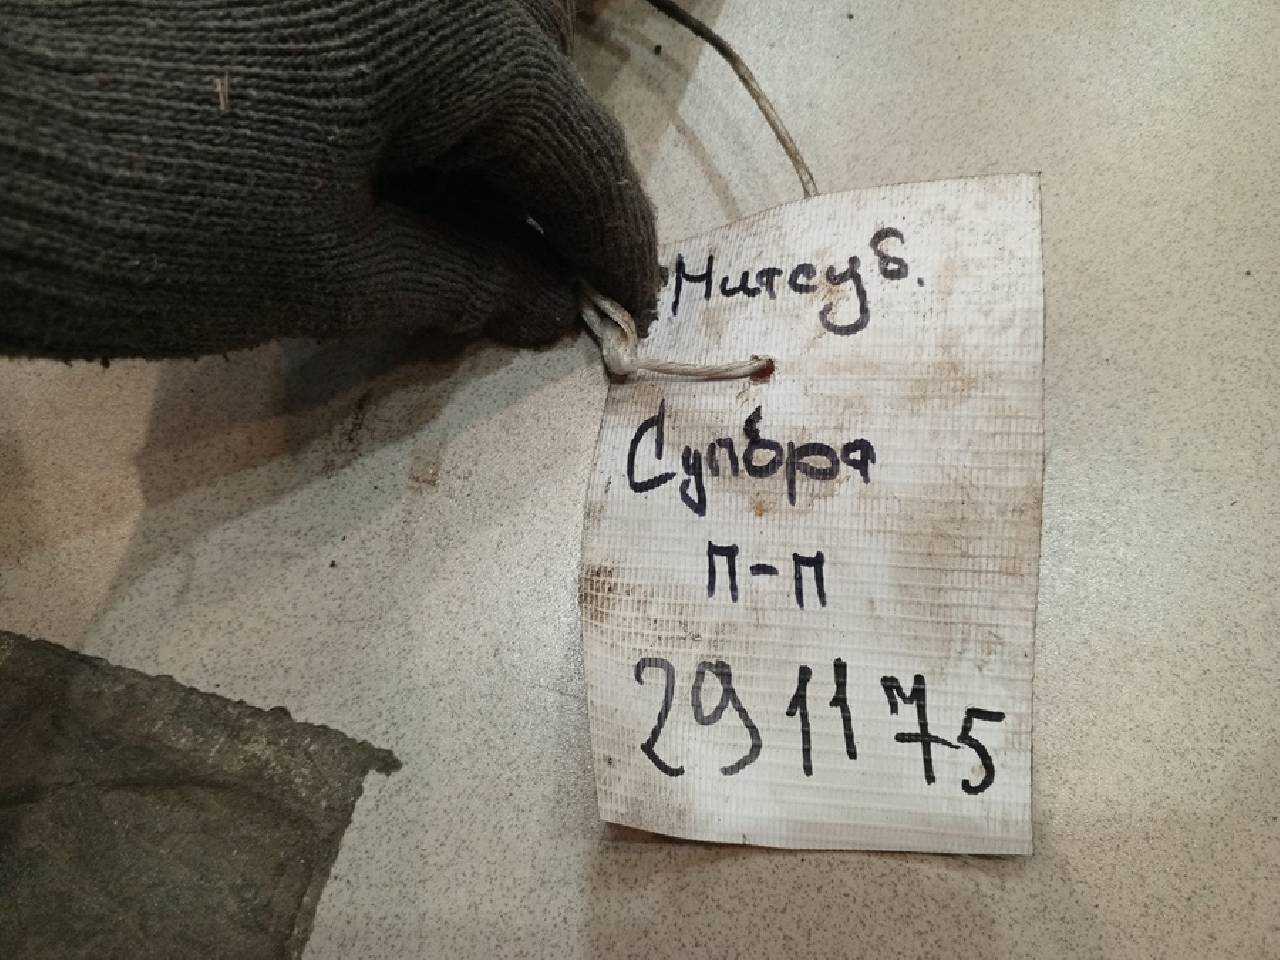 Митсуб.
Супбря
п-п
291175